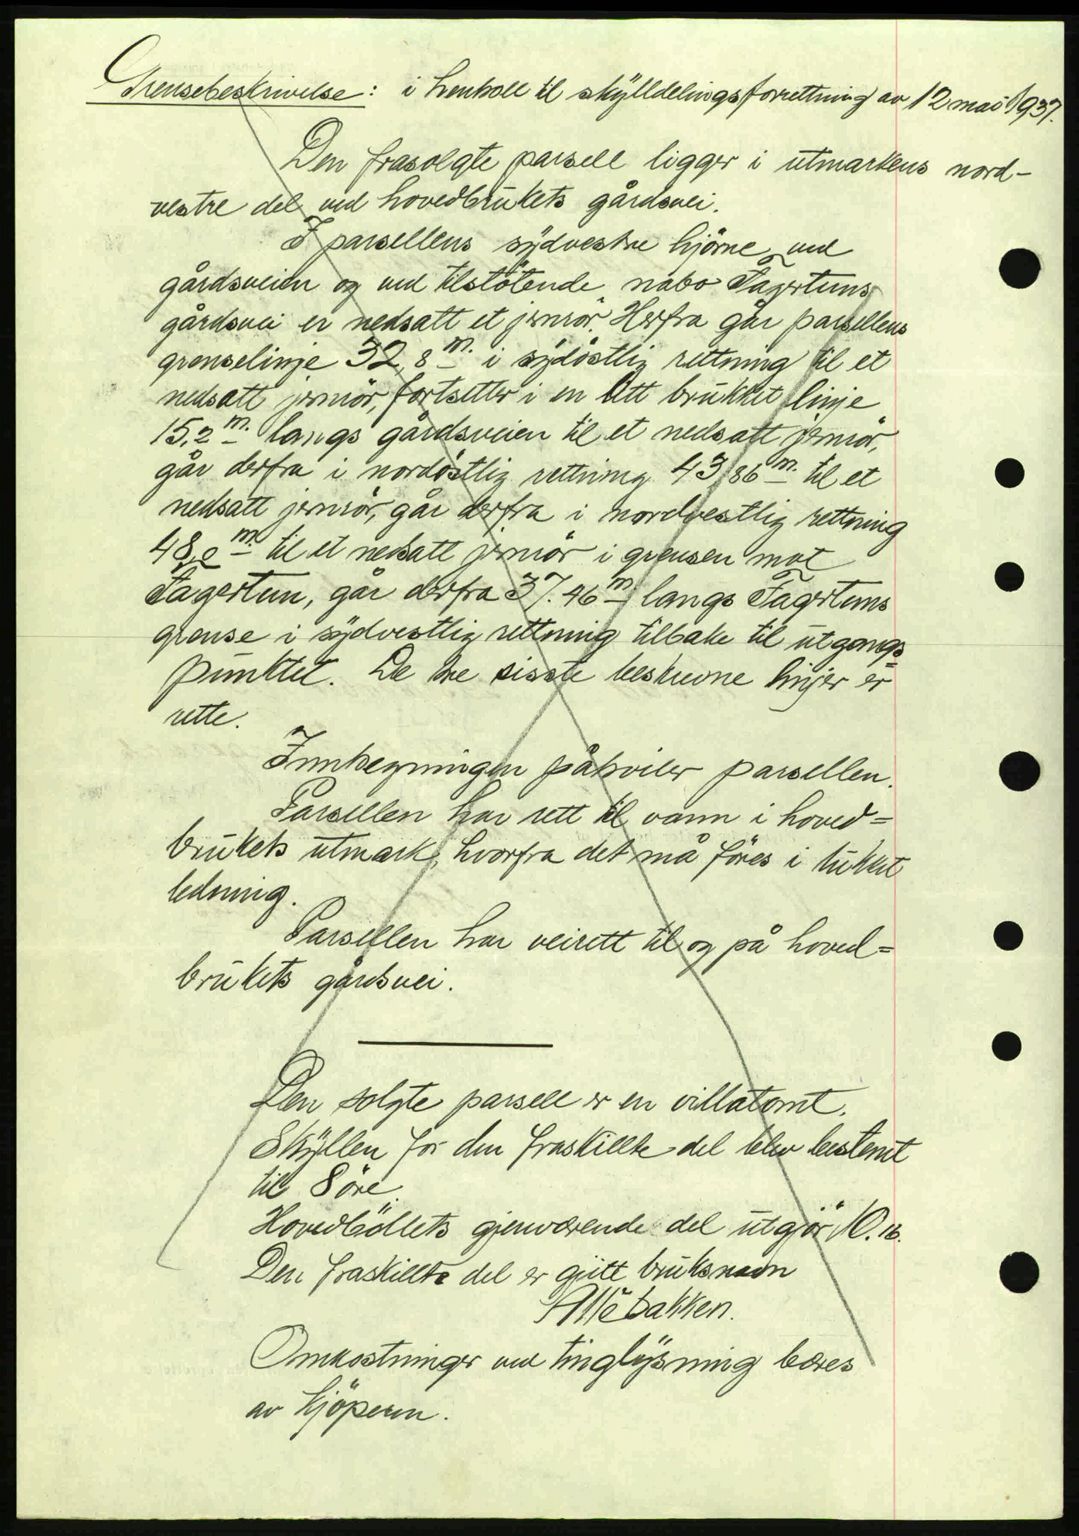 Grensebeskrivelse: i henhold til skylddelingsforrettning av 12 mai 1937.
Den frasolgte parsell ligger i utmarkens nord-
vestre del ved hovedbrukets gårdsvei.
I parsellens sydvestre hjörne, ved
gårdsveien og ved tilstötende nabo Fagertuns
gårdsvei er nedsatt et jernrör. Herfra går parsellens
grenselinje 32,8 m. i sydöstlig rettning til et
nedsatt jernrör, fortsetter i en litt brukket linje
15,2 m. langs gårdsveien til et nedsatt jernrör,
går derfra i nordöstlig rettning 43,86 m. til et
nedsatt jernrör, går derfra i nordvestlig rettning
48,0 m. til et nedsatt jernrör i grensen mot
Fagertun, går derfra 37.46 m. langs Fagertuns
grense i sydvestlig rettning tilbake til utgangs-
punktet. De tre sisste beskrevne linjer er
rette.
Innhegningen påhviler parsellen.
Parsellen har rett til vann i hoved=
brukets utmark, hvorfra det må föres i lukket
ledning.
Parsellen har veirett til og på hoved=
brukets gårdsvei.
Den solgte parsell er en villatomt.
Skyllen for den fraskillte del blev bestemt
til 8 öre.
Hovedböllets gjenværende del utgjör 10.16.
Den fraskillte del er gitt bruksnavn
Allébakken.
Omkostninger ved tinglysning bæres
av kjöperen.